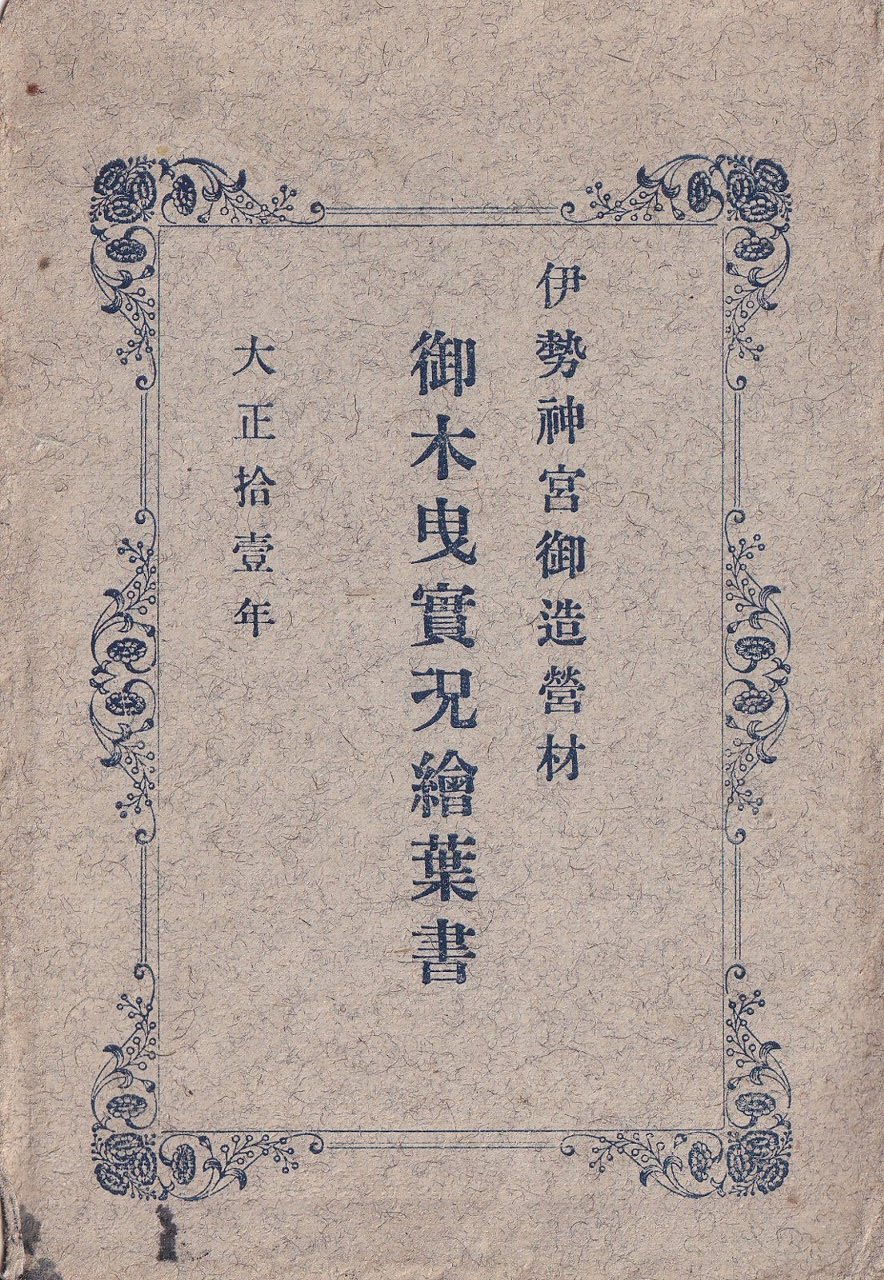 伊勢神宮御造營材
御木曳實况繪葉書
大正拾壹年